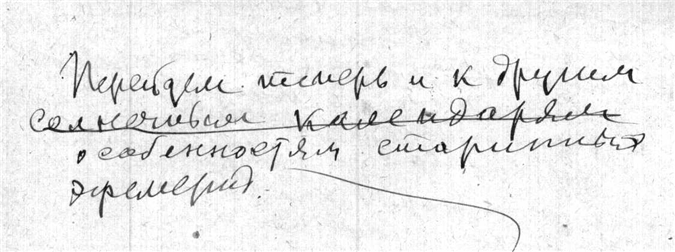 Перейдем теперь и к другим
солнечным календарям
особенностям старинных
эфемерид.